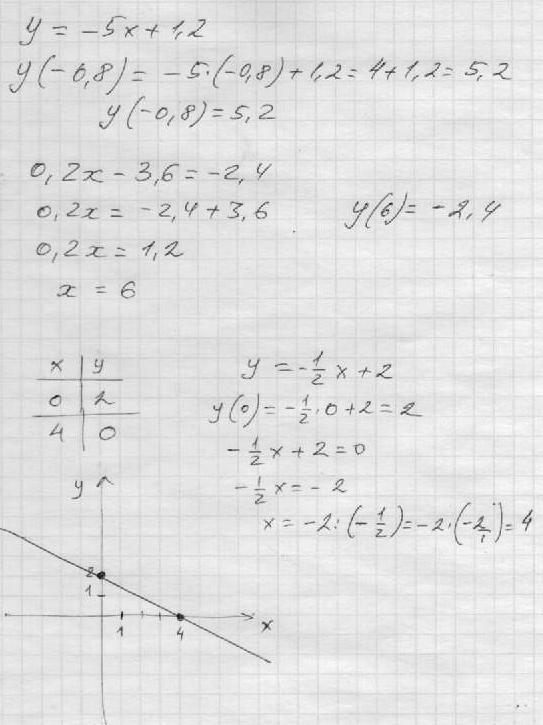 y = -5x + 1,2
y(-0,8) = -5·(-0,8) + 1,2 = 4 + 1,2 = 5,2
y(-0,8) = 5,2
0,2x - 3,6 = -2,4
0,2x = -2,4 + 3,6
y(6) = -2,4
0,2x = 1,2
x = 6
x | y
0 | 2
4 | 0
y = -1/2 x + 2
y(0) = -1/2 · 0 + 2 = 2
-1/2 x + 2 = 0
-1/2 x = -2
x = -2 : (-1/2) = -2 · (-2/1) = 4
y
2
1
1
4
x